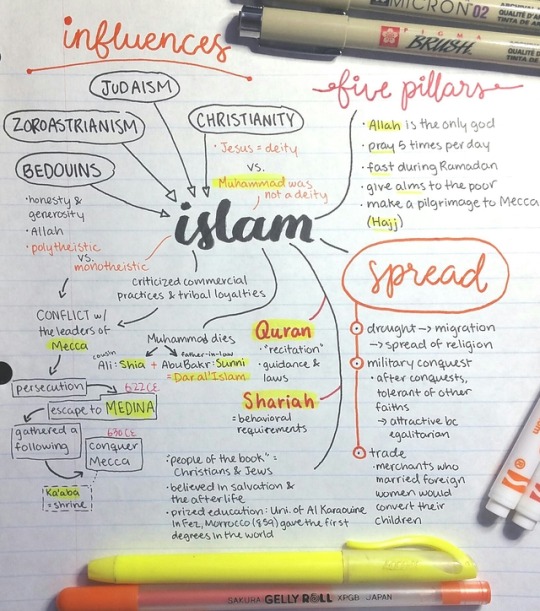 influences
MICRON 02
QUALITÉ D'AR
TINTA DE AR
SAKURA
PIGMA
BRUSH
QUALITÉ
TINTA DE
JUDAISM
ZOROASTRIANISM
BEDOUINS
CHRISTIANITY
• Jesus = deity
vs.
Muhammad was
not a deity
islam
• honesty &
generosity
• Allah
• polytheistic
vs.
monotheistic
five pillars
• Allah is the only god
• pray 5 times per day
• fast during Ramadan
• give alms to the poor
• make a pilgrimage to Mecca
(Hajj)
criticized commercial
practices & tribal loyalties
CONFLICT w/
the leaders of
Mecca
persecution
622 CE
escape to MEDINA
gathered a
following
630 CE
conquer
Mecca
Ka'aba
= shrine
Muhammad dies
cousin
father-in-law
Ali: Shia + Abu Bakr: Sunni
= Dar al'Islam
Quran
• "recitation"
• guidance &
laws
Shariah
= behavioral
requirements
• "people of the book" =
Christians & Jews
• believed in salvation &
the afterlife
• prized education: Uni. of Al Karaouine
in Fez, Morrocco (859) gave the first
degrees in the world
spread
drought → migration
→ spread of religion
military conquest
• after conquests,
tolerant of other
faiths
→ attractive bc
egalitarian
trade
• merchants who
married foreign
women would
convert their
children
SAKURA GELLY ROLL XPGB JAPAN